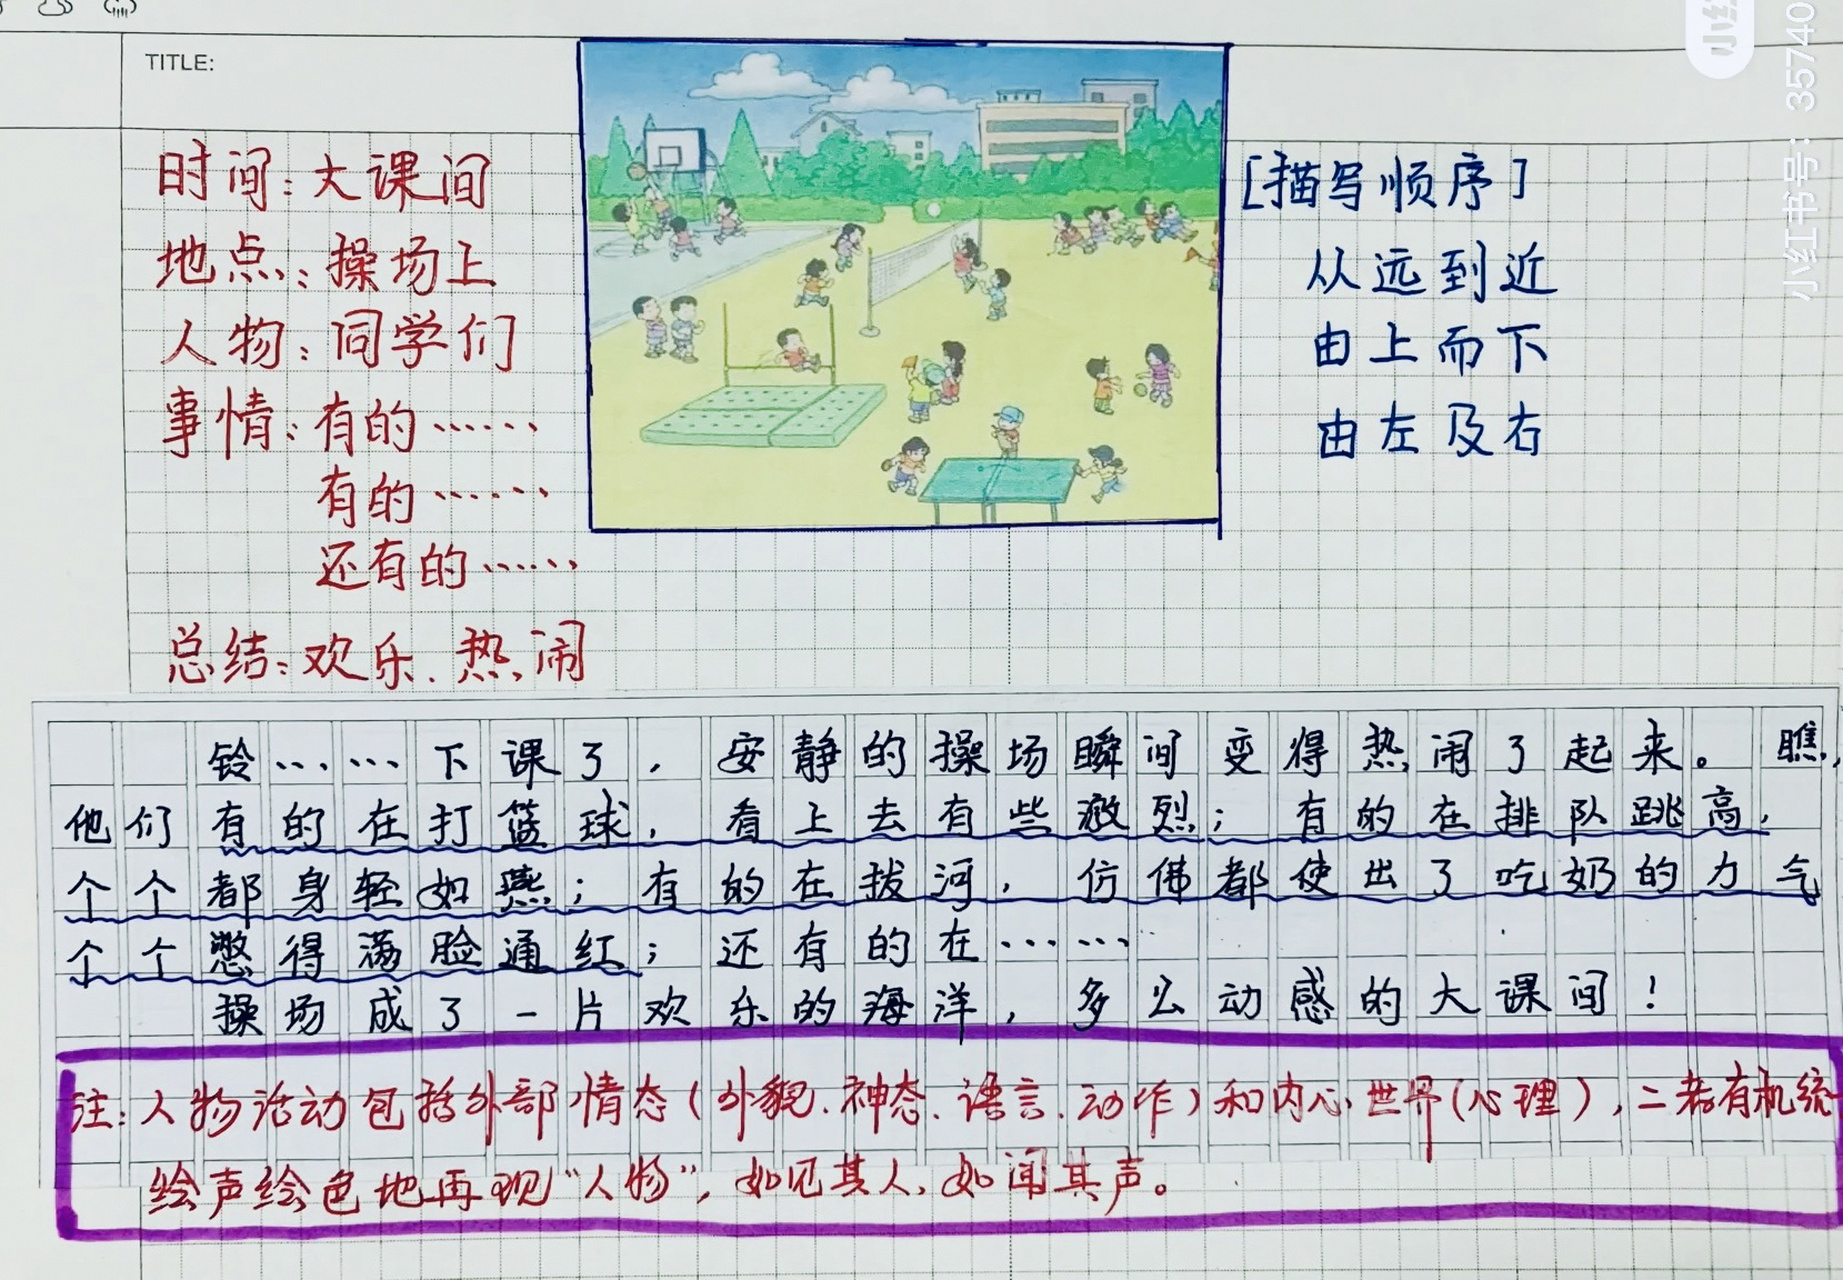 TITLE:
时间:大课间
地点:操场上
人物:同学们
事情:有的……
有的……
还有的……
总结:欢乐.热闹
[描写顺序]
从远到近
由上而下
由左及右
铃……下课了,安静的操场瞬间变得热闹了起来。瞧,
他们有的在打篮球,看上去有些激烈;有的在排队跳高,
个个都身轻如燕;有的在拔河,仿佛都使出了吃奶的力气
个个憋得满脸通红;还有的在……
操场成了一片欢乐的海洋,多么动感的大课间!
注:人物活动包括外部情态(外貌.神态.语言.动作)和内心世界(心理),二者有机统一
绘声绘色地再现“人物”,如见其人,如闻其声。
小红书号:35740